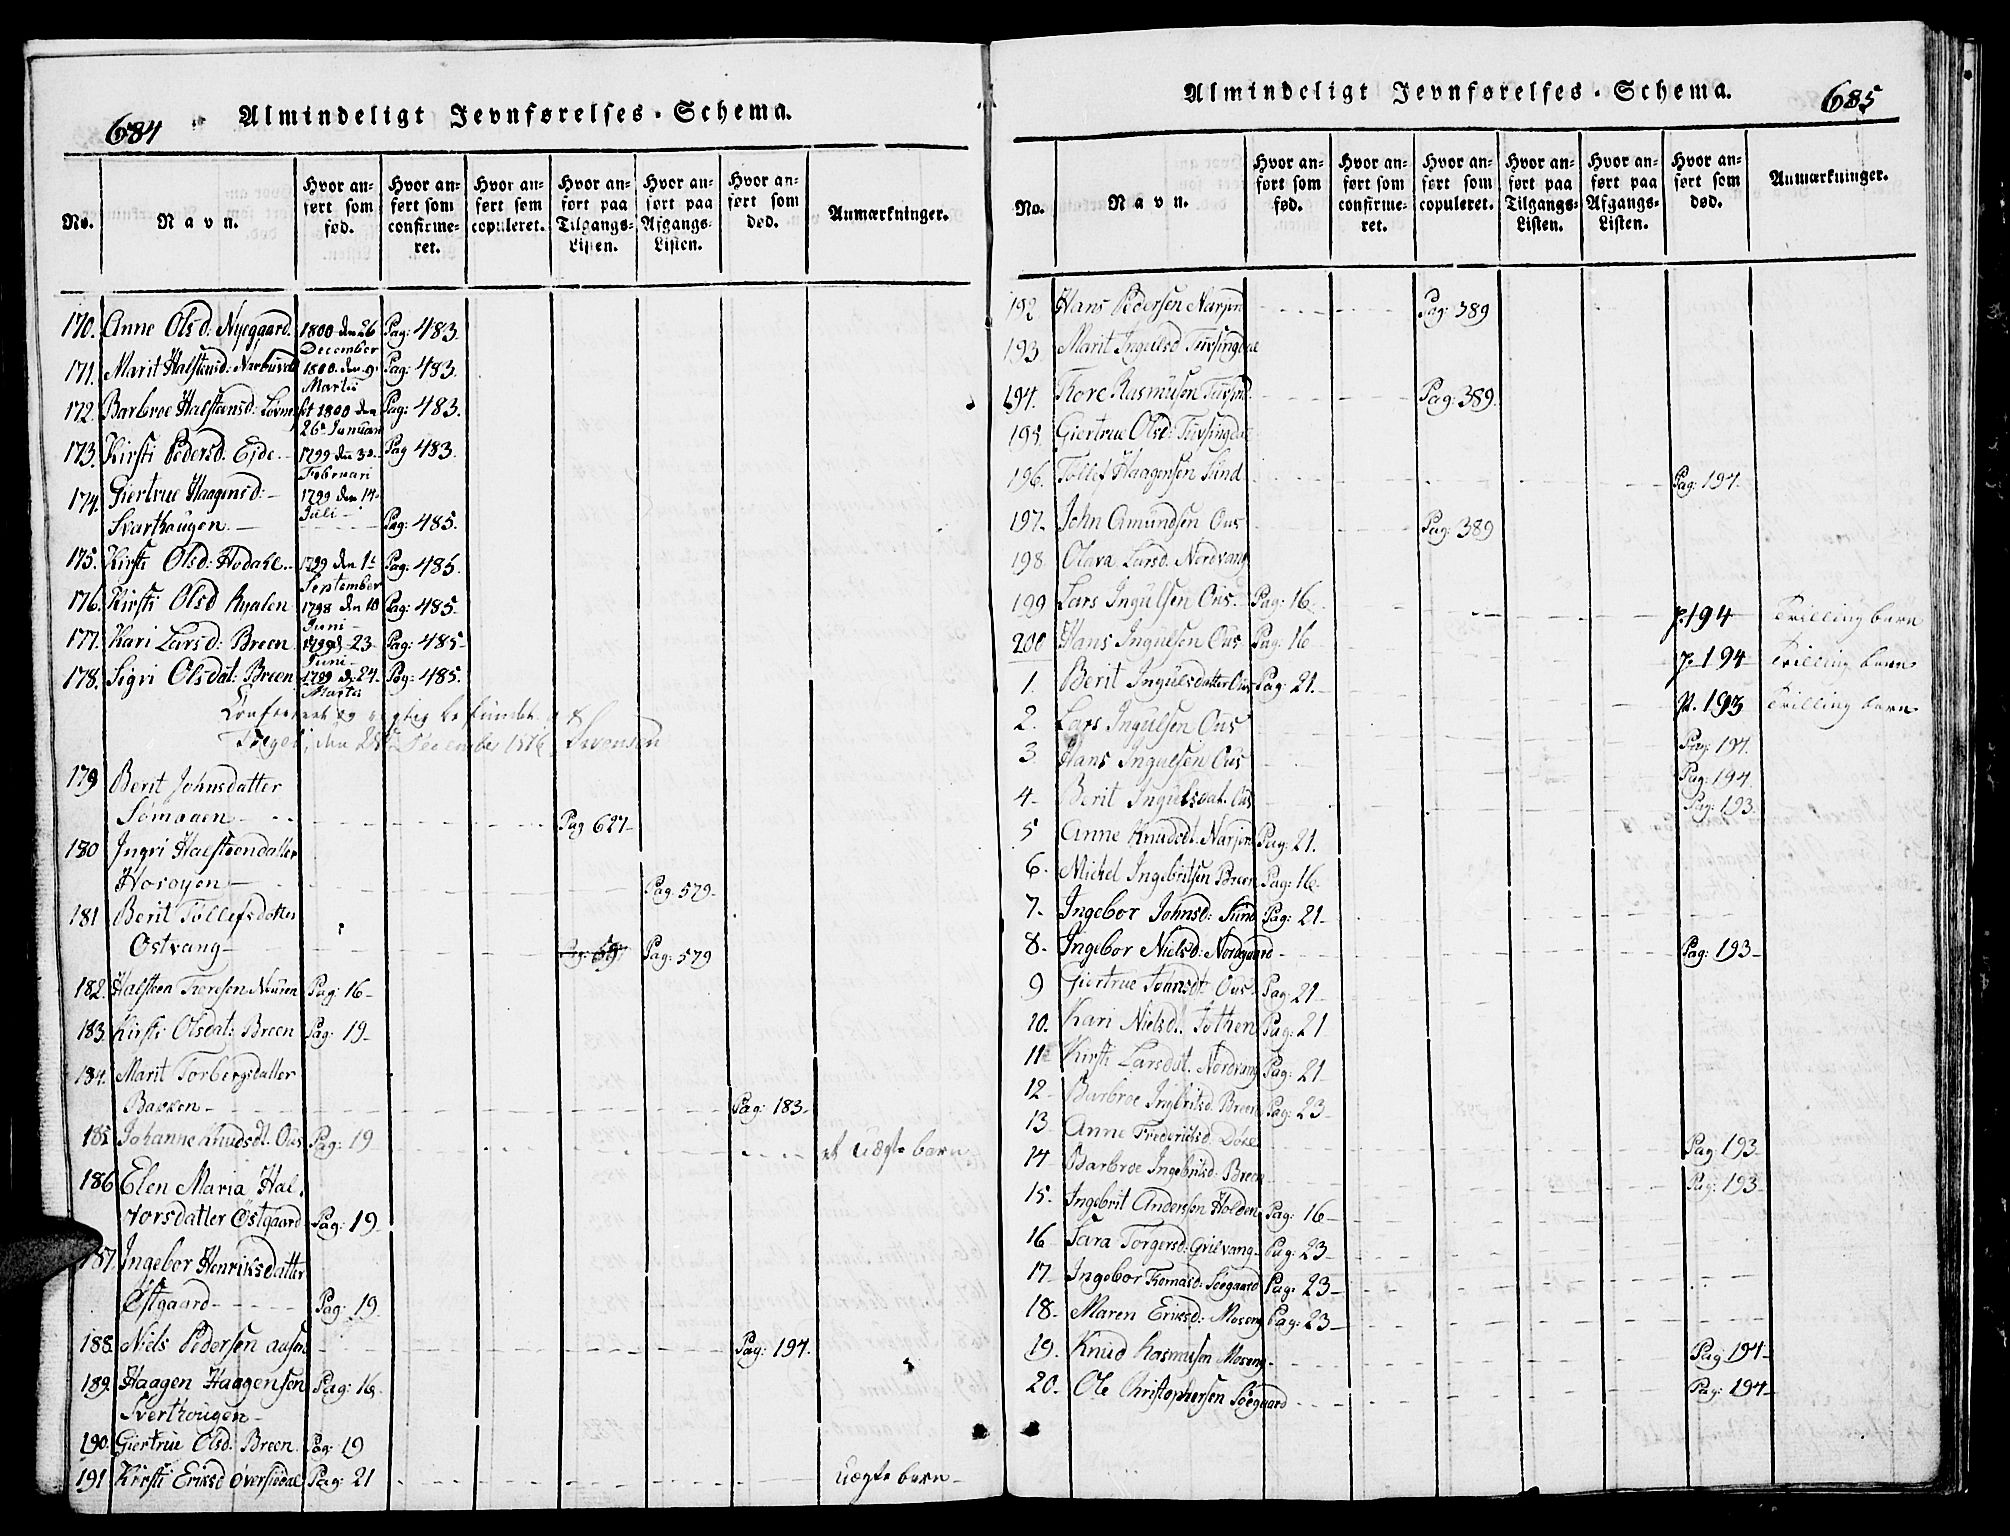 684
Almindeligt Jevnførelses-Schema.
No.
Navn.
Hvor anført som fød.
Hvor anført som confirmeret.
Hvor anført som copuleret.
Hvor anført paa Tilgangs-Listen.
Hvor anført paa Afgangs-Listen.
Hvor anført som død.
Anmærkninger.
170. Anne Olsd: Nyeggaard. 1800 den 26 December Pag: 483.
171. Marit Halstensd: 1800. den 9. Martii Pag: 483.
172. Barbroe Halstensd: 1800 den 26 Januari Pag: 483.
173. Kirsti Pedersd. Eide. 1799 den 3 Februari Pag 483.
174. Giertrue Haagensd: 1799 den 14 Juli
Svarthaugen. Pag: 485.
175. Kirsti Olsd: Hodahl. 1799 den 1 September Pag: 485.
176. Kirsti Olsd Ryalen 1798 den 10 Juni Pag: 485.
177. Kari Larsd: Breen 1799 d. 23 Juni Pag: 485
178. Sigri Olsdat: Breen 1799 d. 24. Martii Pag: 485.
og rigtig befundet
den 28 December 1816 Svensen
179 Berit Johnsdatter
Pag 627
180 Ingri Halsteendatter
Hosøyen Pag. 579
181 Berit Tollefsdatter
Østvang Pag: 579
182. Halsteen Toresen Neuren Pag: 16
183. Kirsti Olsdat: Breen Pag: 19
184. Marit Torbergsdatter
Bakken Pag: 183
185 Johanne Knudsdt. Ous Pag: 19 et uægte barn
186 Elen Maria Hal-
vorsdatter Østgaard Pag: 19
187. Ingebor Henriksdatter
Østgaard Pag: 19.
188. Niels Pedersen Pag: 194.
189. Haagen Haagensen Pag: 16.
Sverthougen
190. Giertrue Olsd. Breen. Pag: 19
191 Kirsti Eriksd Øversiødal Pag: 21 uægte barn
685
Almindeligt Jevnførelses-Schema.
No.
Navn.
Hvor anført som fød.
Hvor anført som confirmeret.
Hvor anført som copuleret.
Hvor anført paa Tilgangs-Listen.
Hvor anført paa Afgangs-Listen.
Hvor anført som død.
Anmærkninger.
192 Hans Pedersen Narjord Pag: 389
193 Marit Ingulsd Tufsingdal
194. Tore Rasmusen Pag: 389.
195 Giertrue Olsd: Tufsingdal
196. Tollef Haagensen Sund Pag: 194.
197. John Amundsen Ous Pag: 389
198 Olava Larsd. Nordvang
199 Lars Ingulsen Ous. Pag: 16. p. 194 Trilling barn
200 Hans Ingulsen Ous Pag: 16 p. 194 Trilling barn
1. Berit Ingulsdatter Ous Pag: 21. p. 193 Trilling barn
2. Lars Ingulsen Ous Pag: 194.
3. Hans Ingulsen Ous Pag: 194.
4 Berit Ingulsdat. Ous Pag: 193
5 Anne Knudsdt. Narjord Pag: 21.
6. Michel Ingebritsen Breen Pag: 16
7. Ingebor Johnsd: Sund Pag: 21
8. Ingebor Nielsd: Nordgaard Pag: 193
9 Giertrue Tønnsdt. Ous Pag: 21
10. Kari Nielsdt. Pag: 21
11 Kirsti Larsdat. Nordvang Pag: 21
12 Barbroe Ingbritsd. Breen Pag: 23
13. Anne Frederiksd Pag: 193
14 Barbroe Ingebritsd. Breen Pag: 193
15. Ingebrit Andersen Holden Pag: 16
16 Sara Torgersd: Grilvang Pag: 23
17 Ingebor Tomasd: Søegaard Pag: 23
18. Maren Eriksd: Moseng Pag: 23
19. Knud Rasmusen Moseng Pag: 194
20. Ole Christophersen Søegaard Pag: 194